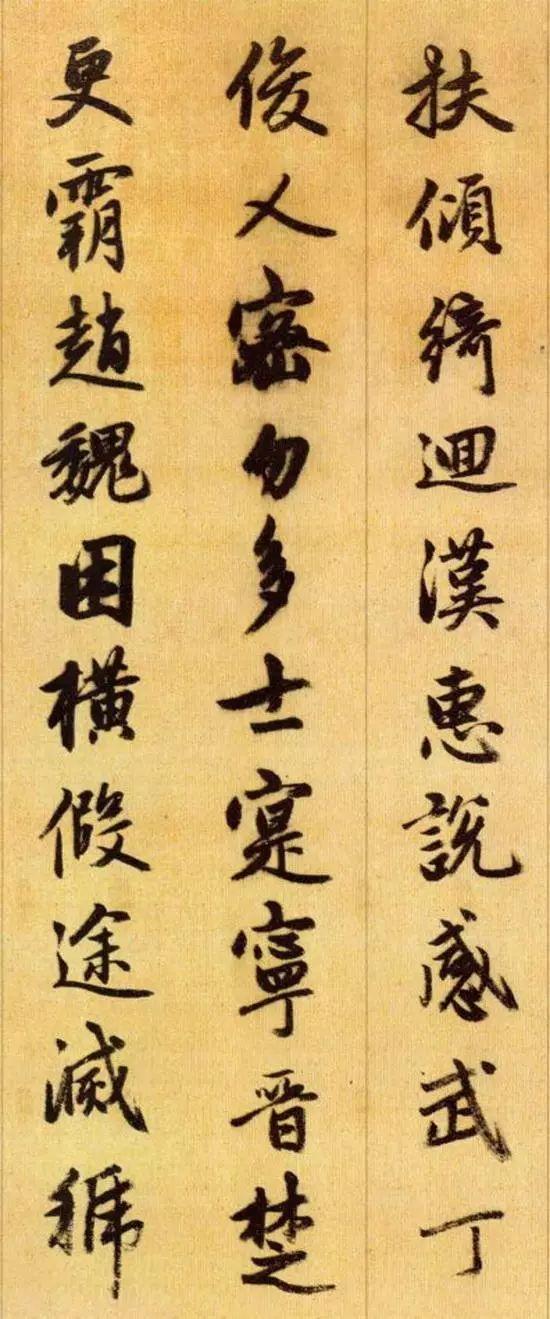 扶傾綺迴漢惠說感武丁
俊乂密勿多士寔寧晋楚
更霸趙魏困橫假途滅虢